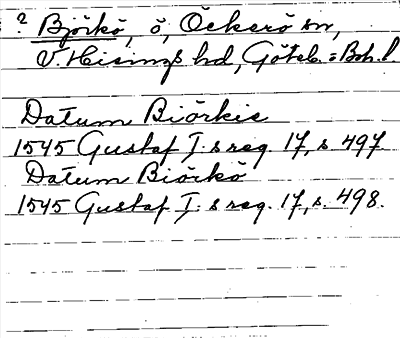 ? Björkö, ö, Öckerö sn,
V. Hisings hd, Göteb. o Boh. l.
Datum Biörkie
1545 Gustaf I:s reg. 17, s. 497
Datum Biörkö
1545 Gustaf I:s reg. 17, s. 498.